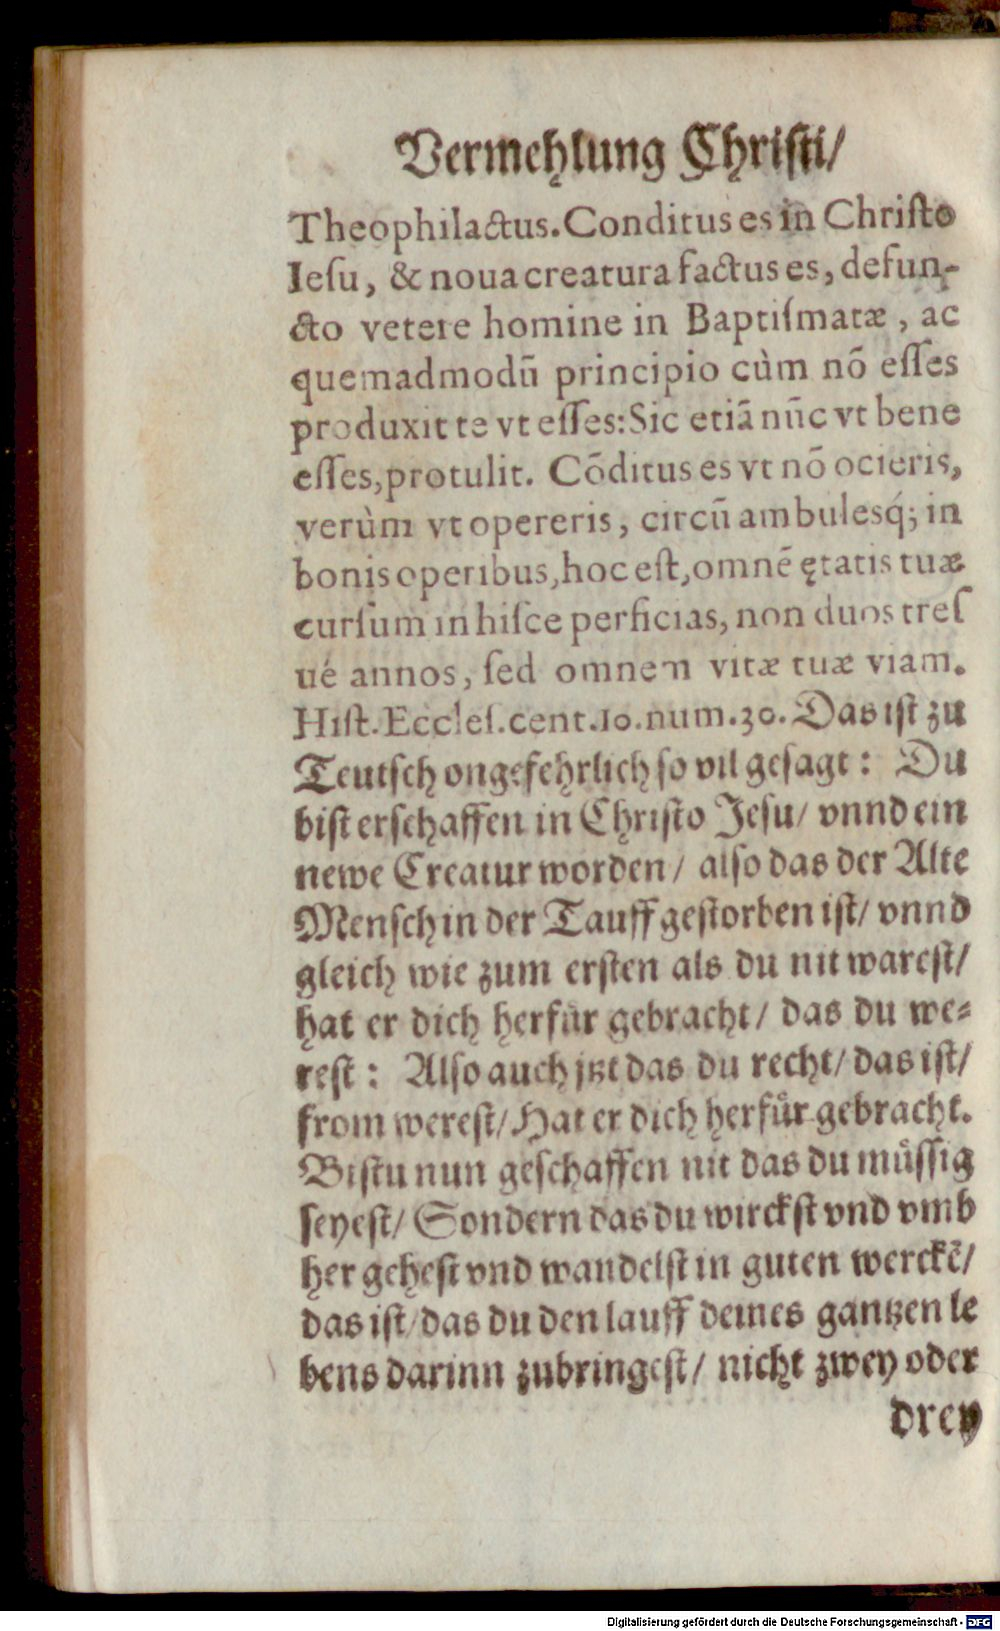 Vermehlung Christi/
Theophilactus. Conditus es in Christo
Iesu, & noua creatura factus es, defun-
cto vetere homine in Baptismatæ, ac
quemadmodū principio cùm nō esses
produxit te vt esses: Sic etiā nūc vt bene
esses, protulit. Cōditus es vt nō ocieris,
verùm vt opereris, circū ambulesq́; in
bonis operibus, hoc est, omnē ętatis tuæ
cursum in hisce perficias, non duos tres
ué annos, sed omnem vitæ tuæ viam.
Hist. Eccles. cent. 10. num. 30. Das ist zu
Teutsch ongefehrlich so vil gesagt: Du
bist erschaffen in Christo Jesu/ vnnd ein
newe Creatur worden/ also das der Alte
Mensch in der Tauff gestorben ist/ vnnd
gleich wie zum ersten als du nit warest/
hat er dich herfür gebracht/ das du we-
rest: Also auch jtzt das du recht/ das ist/
from werest/ Hat er dich herfür gebracht.
Bistu nun geschaffen nit das du müssig
seyest/ Sondern das du wirckst vnd vmb
her gehest vnd wandelst in guten werckē/
das ist/ das du den lauff deines gantzen le
bens darinn zubringest/ nicht zwey oder
drey
Digitalisierung gefördert durch die Deutsche Forschungsgemeinschaft - DFG